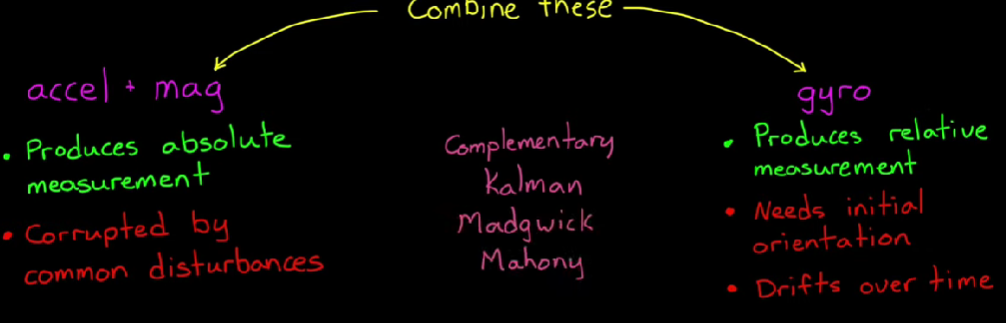 Combine these
accel + mag
• Produces absolute
measurement
• Corrupted by
common disturbances
Complementary
Kalman
Madgwick
Mahony
gyro
• Produces relative
measurement
• Needs initial
orientation
• Drifts over time